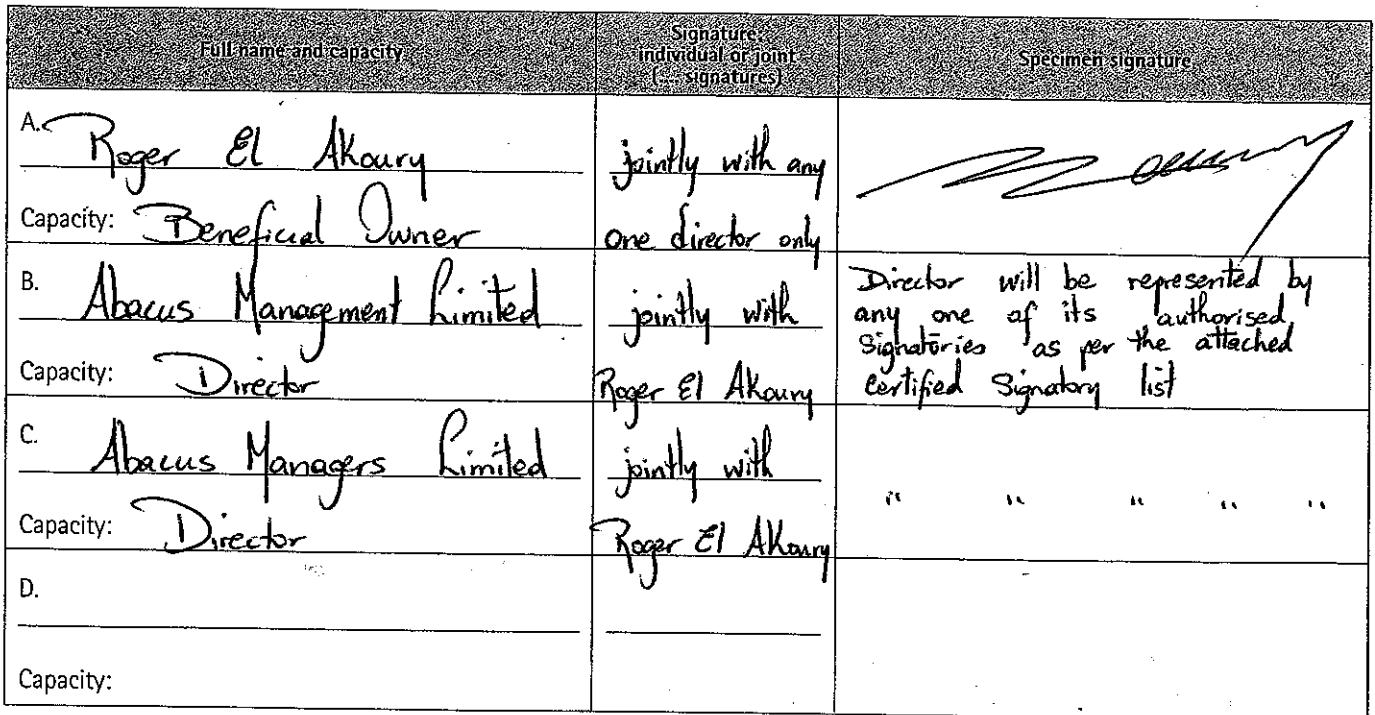 Full name and capacity
Signature:
individual or joint
(.... signatures)
Specimen signature
A. Roger El Akoury
Capacity: Beneficial Owner
jointly with any
one director only
B. Abacus Management Limited
Capacity: Director
jointly with
Roger El Akoury
Director will be represented by
any one of its authorised
Signatories as per the attached
Certified Signatory list
C. Abacus Managers Limited
Capacity: Director
jointly with
Roger El Akoury
" " " " "
D.
Capacity: